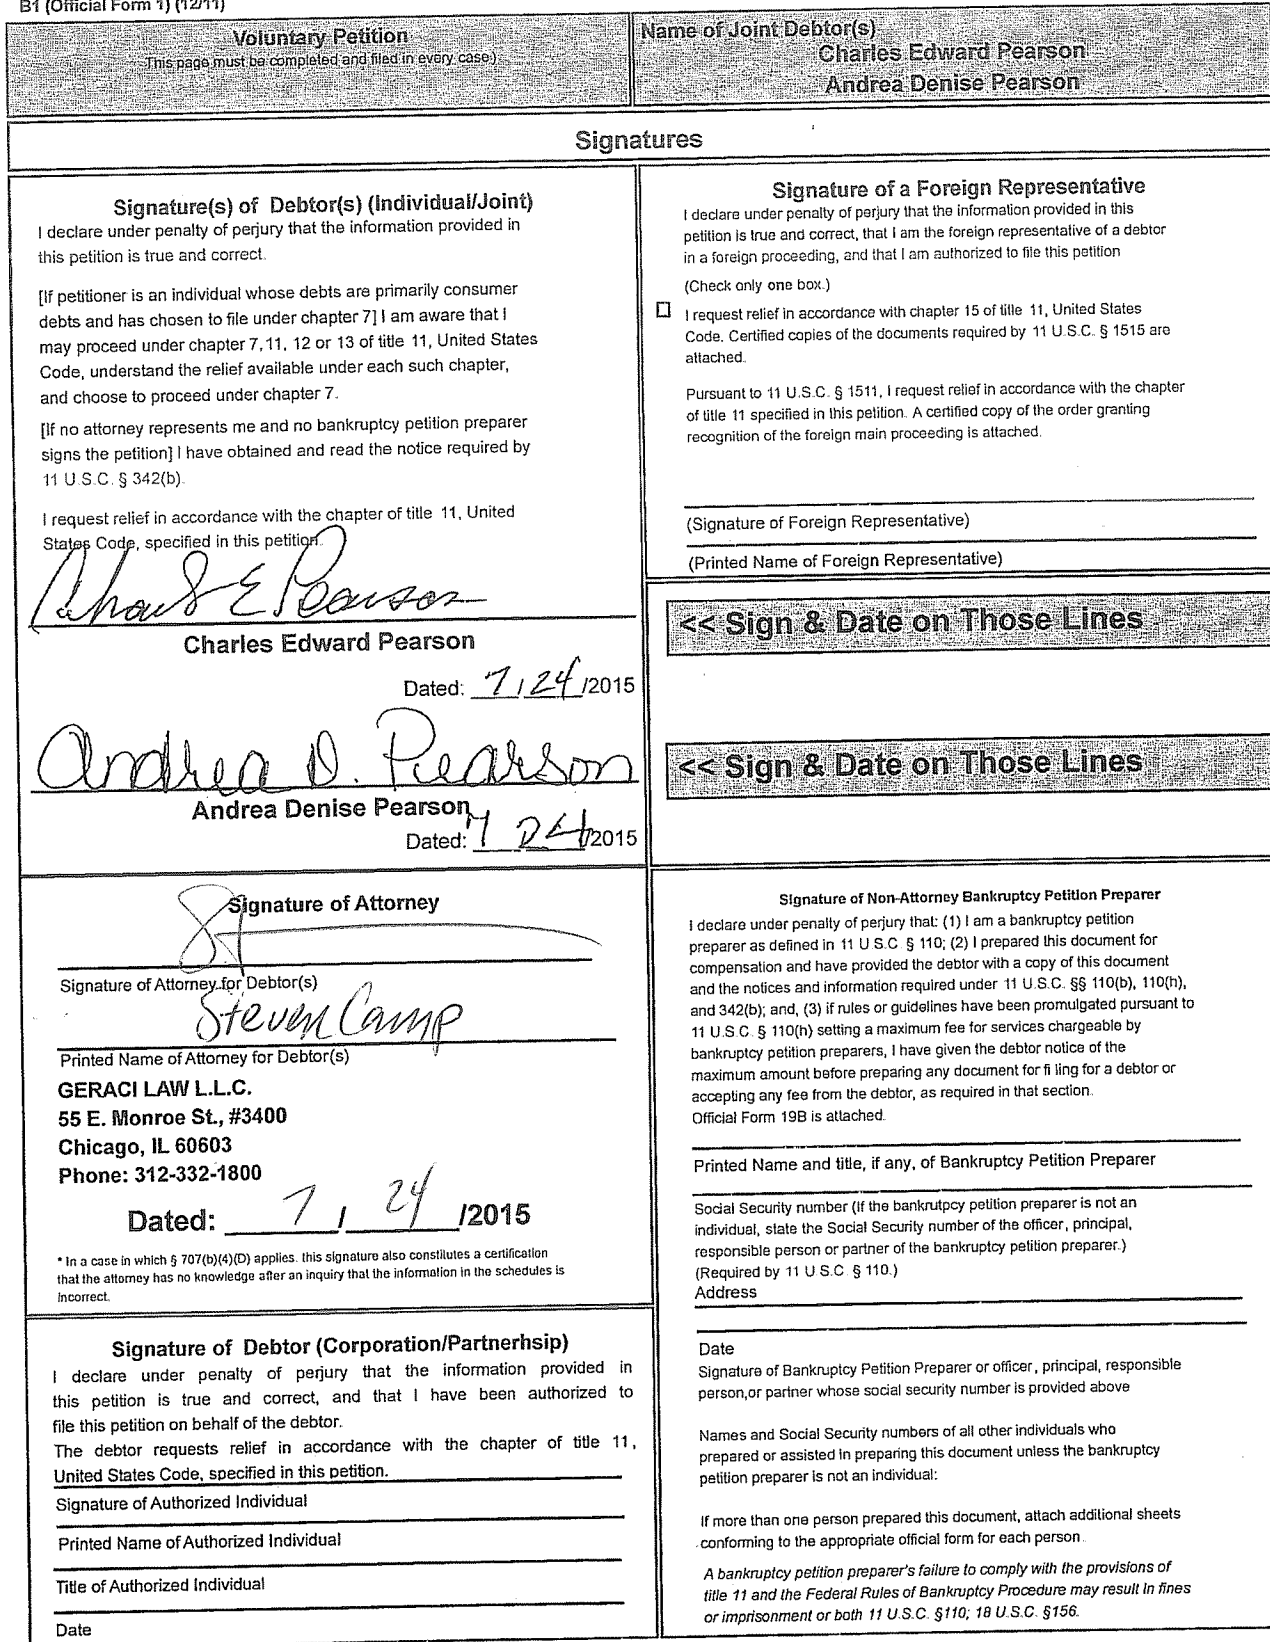 B1 (Official Form 1) (12/11)
Voluntary Petition
This page must be completed and filed in every case)
Name of Joint Debtor(s)
Charles Edward Pearson
Andrea Denise Pearson
Signatures
Signature(s) of Debtor(s) (Individual/Joint)
I declare under penalty of perjury that the information provided in
this petition is true and correct.
[If petitioner is an individual whose debts are primarily consumer
debts and has chosen to file under chapter 7] I am aware that I
may proceed under chapter 7,11, 12 or 13 of title 11, United States
Code, understand the relief available under each such chapter,
and choose to proceed under chapter 7.
[If no attorney represents me and no bankruptcy petition preparer
signs the petition] I have obtained and read the notice required by
11 U.S.C. § 342(b).
I request relief in accordance with the chapter of title 11, United
States Code, specified in this petition.
Charles E Pearson
Charles Edward Pearson
Dated: 7/24/2015
Andrea D. Pearson
Andrea Denise Pearson
Dated: 7 24/2015
Signature of Attorney
Signature of Attorney for Debtor(s)
Steven Camp
Printed Name of Attorney for Debtor(s)
GERACI LAW L.L.C.
55 E. Monroe St., #3400
Chicago, IL 60603
Phone: 312-332-1800
Dated: 7 / 24 /2015
* In a case in which § 707(b)(4)(D) applies. this signature also constitutes a certification
that the attorney has no knowledge after an inquiry that the information in the schedules is
incorrect.
Signature of Debtor (Corporation/Partnerhsip)
I declare under penalty of perjury that the information provided in
this petition is true and correct, and that I have been authorized to
file this petition on behalf of the debtor.
The debtor requests relief in accordance with the chapter of title 11,
United States Code, specified in this petition.
Signature of Authorized Individual
Printed Name of Authorized Individual
Title of Authorized Individual
Date
Signature of a Foreign Representative
I declare under penalty of perjury that the information provided in this
petition is true and correct, that I am the foreign representative of a debtor
in a foreign proceeding, and that I am authorized to file this petition
(Check only one box.)
I request relief in accordance with chapter 15 of title 11, United States
Code. Certified copies of the documents required by 11 U.S.C. § 1515 are
attached.
Pursuant to 11 U.S.C. § 1511, I request relief in accordance with the chapter
of title 11 specified in this petition. A certified copy of the order granting
recognition of the foreign main proceeding is attached.
(Signature of Foreign Representative)
(Printed Name of Foreign Representative)
<< Sign & Date on Those Lines
<< Sign & Date on Those Lines
Signature of Non-Attorney Bankruptcy Petition Preparer
I declare under penalty of perjury that: (1) I am a bankruptcy petition
preparer as defined in 11 U.S.C. § 110; (2) I prepared this document for
compensation and have provided the debtor with a copy of this document
and the notices and information required under 11 U.S.C. §§ 110(b), 110(h),
and 342(b); and, (3) if rules or guidelines have been promulgated pursuant to
11 U.S.C. § 110(h) setting a maximum fee for services chargeable by
bankruptcy petition preparers, I have given the debtor notice of the
maximum amount before preparing any document for fi ling for a debtor or
accepting any fee from the debtor, as required in that section.
Official Form 19B is attached.
Printed Name and title, if any, of Bankruptcy Petition Preparer
Social Security number (If the bankrutpcy petition preparer is not an
individual, state the Social Security number of the officer, principal,
responsible person or partner of the bankruptcy petition preparer.)
(Required by 11 U.S.C. § 110.)
Address
Date
Signature of Bankruptcy Petition Preparer or officer, principal, responsible
person,or partner whose social security number is provided above
Names and Social Security numbers of all other individuals who
prepared or assisted in preparing this document unless the bankruptcy
petition preparer is not an individual:
If more than one person prepared this document, attach additional sheets
conforming to the appropriate official form for each person.
A bankruptcy petition preparer's failure to comply with the provisions of
title 11 and the Federal Rules of Bankruptcy Procedure may result in fines
or imprisonment or both 11 U.S.C. §110; 18 U.S.C. §156.